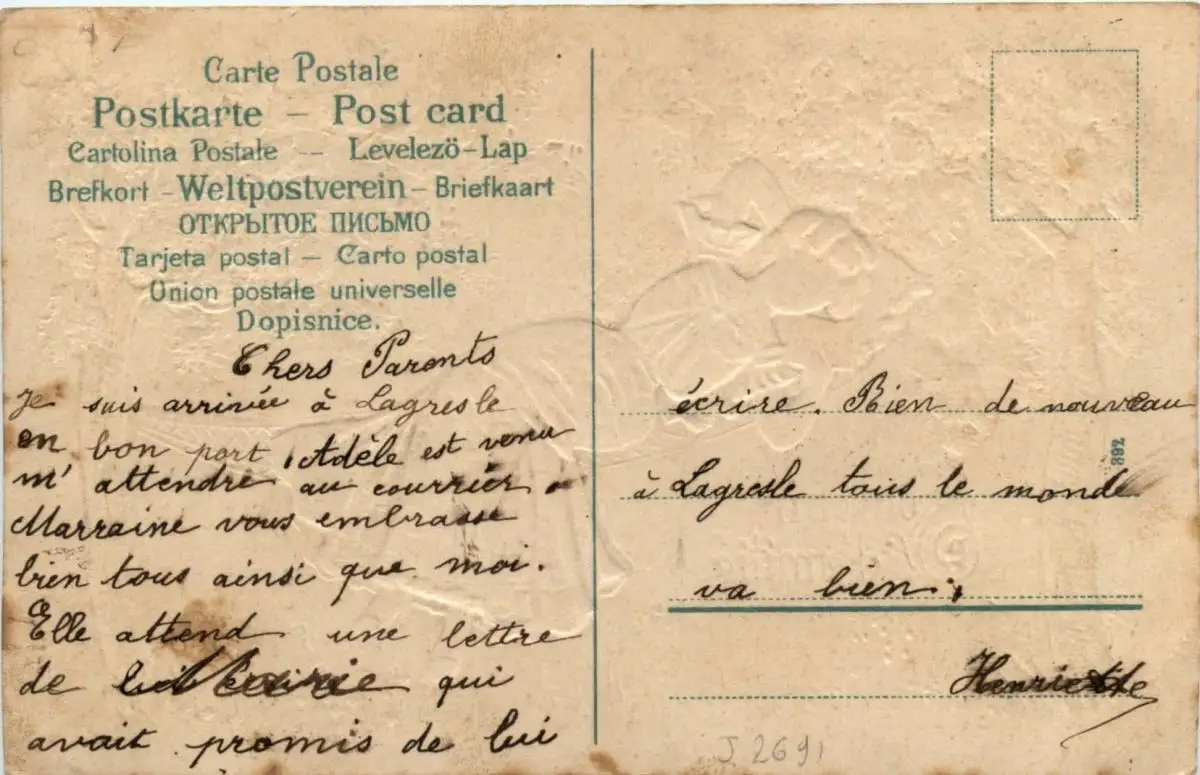 Carte Postale
Postkarte – Post card
Cartolina Postale – Levelező-Lap
Brefkort – Weltpostverein – Briefkaart
ОТКРЫТОЕ ПИСЬМО
Tarjeta postal – Carto postal
Union postale universelle
Dopisnice.
Chers Parents
Je suis arrivée à Lagresle
en bon port, Adèle est venu
m'attendre au courrier.
Marraine vous embrasse
bien tous ainsi que moi.
Elle attend une lettre
de qui
avait promis de lui
écrire. Rien de nouveau
à Lagresle tous le monde
va bien.
Henriette
392
J 2691